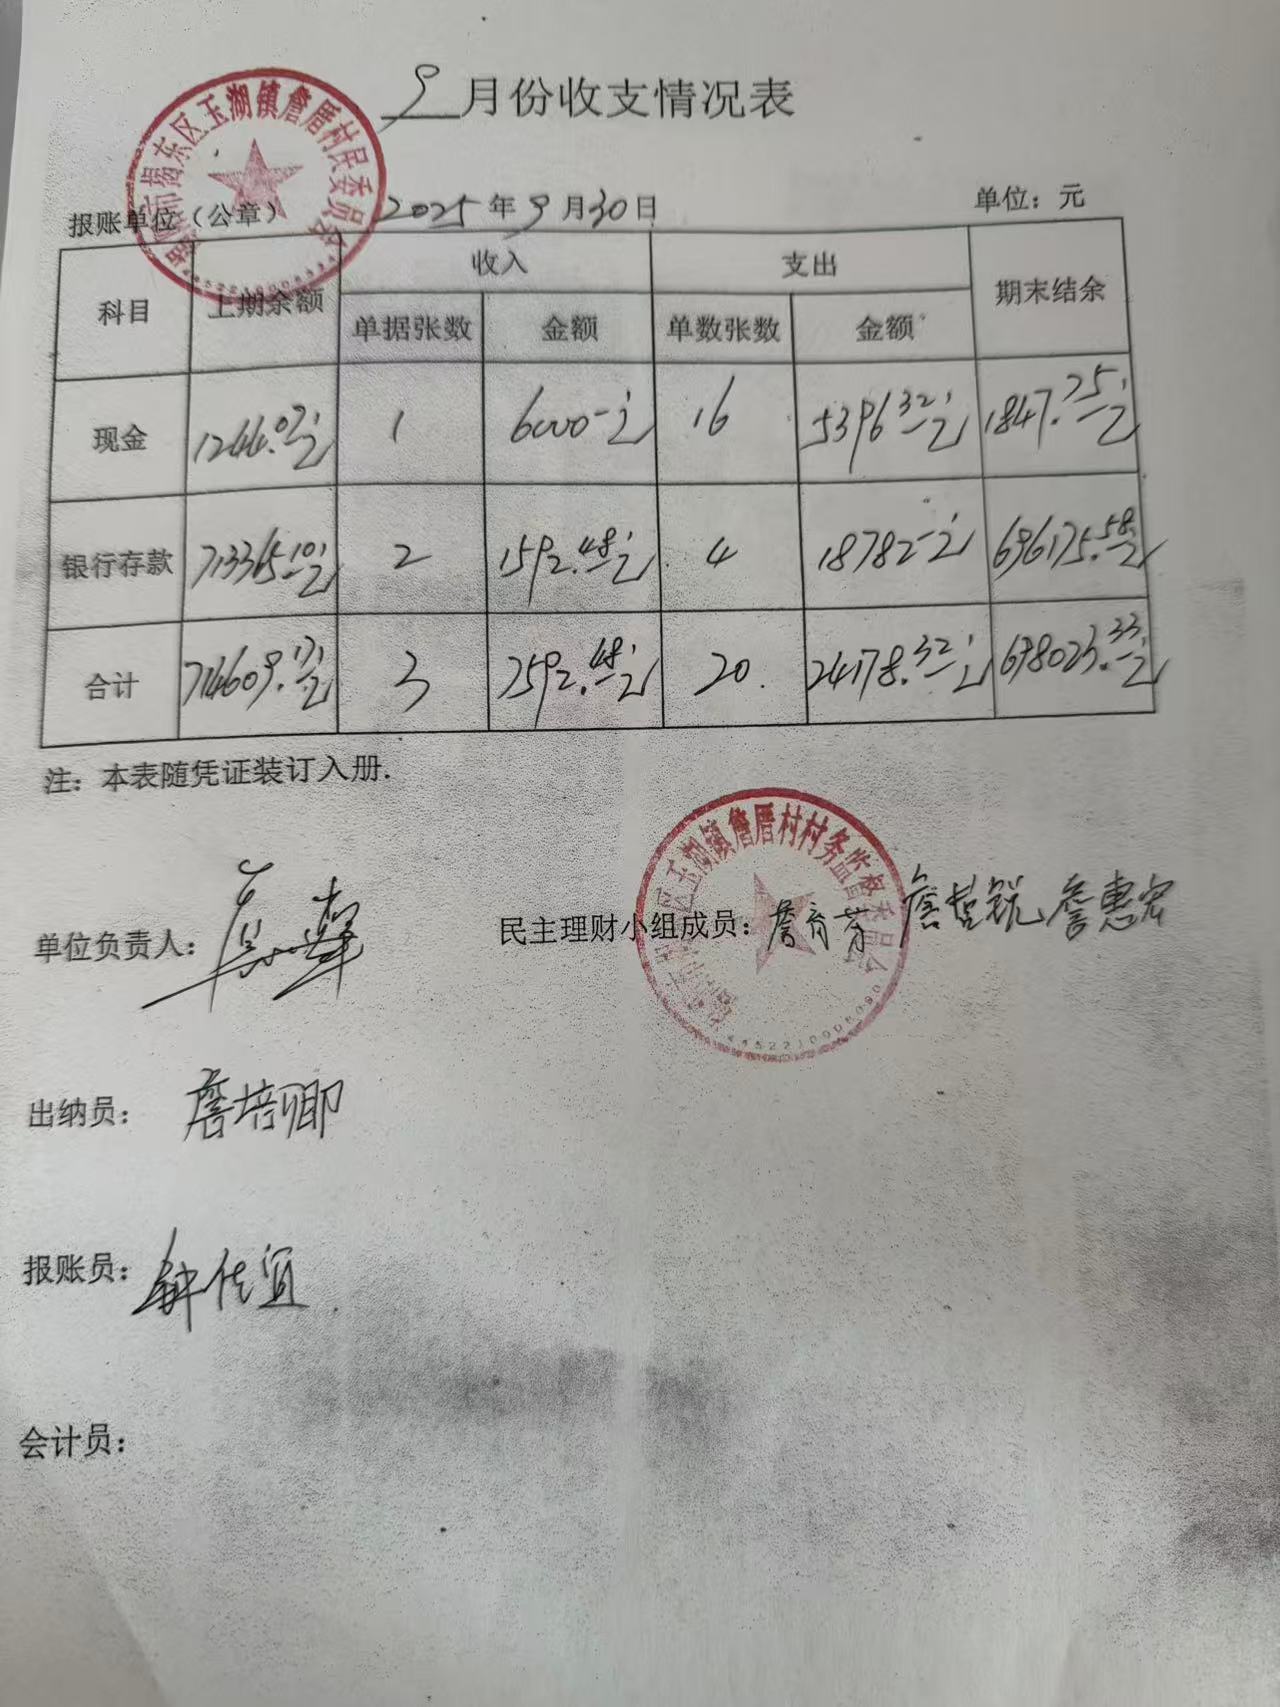 9月份收支情况表
揭东区玉湖镇詹厝村民委员会
报账单位（公章） 2025年9月30日 单位：元
科目 上期余额 收入 支出 期末结余
单据张数 金额 单数张数 金额
现金 1244.07元 1 6000-元 16 5396.32元 1847.75元
银行存款 713365.10元 2 1592.48元 4 18782-元 696175.58元
合计 714609.17元 3 7592.48元 20. 24178.32元 698023.33元
注：本表随凭证装订入册.
区玉湖镇詹厝村村务监督委员会
单位负责人：
民主理财小组成员：詹育芬 詹哲锐 詹惠宏
出纳员：詹培卿
报账员：钟佳谊
会计员：